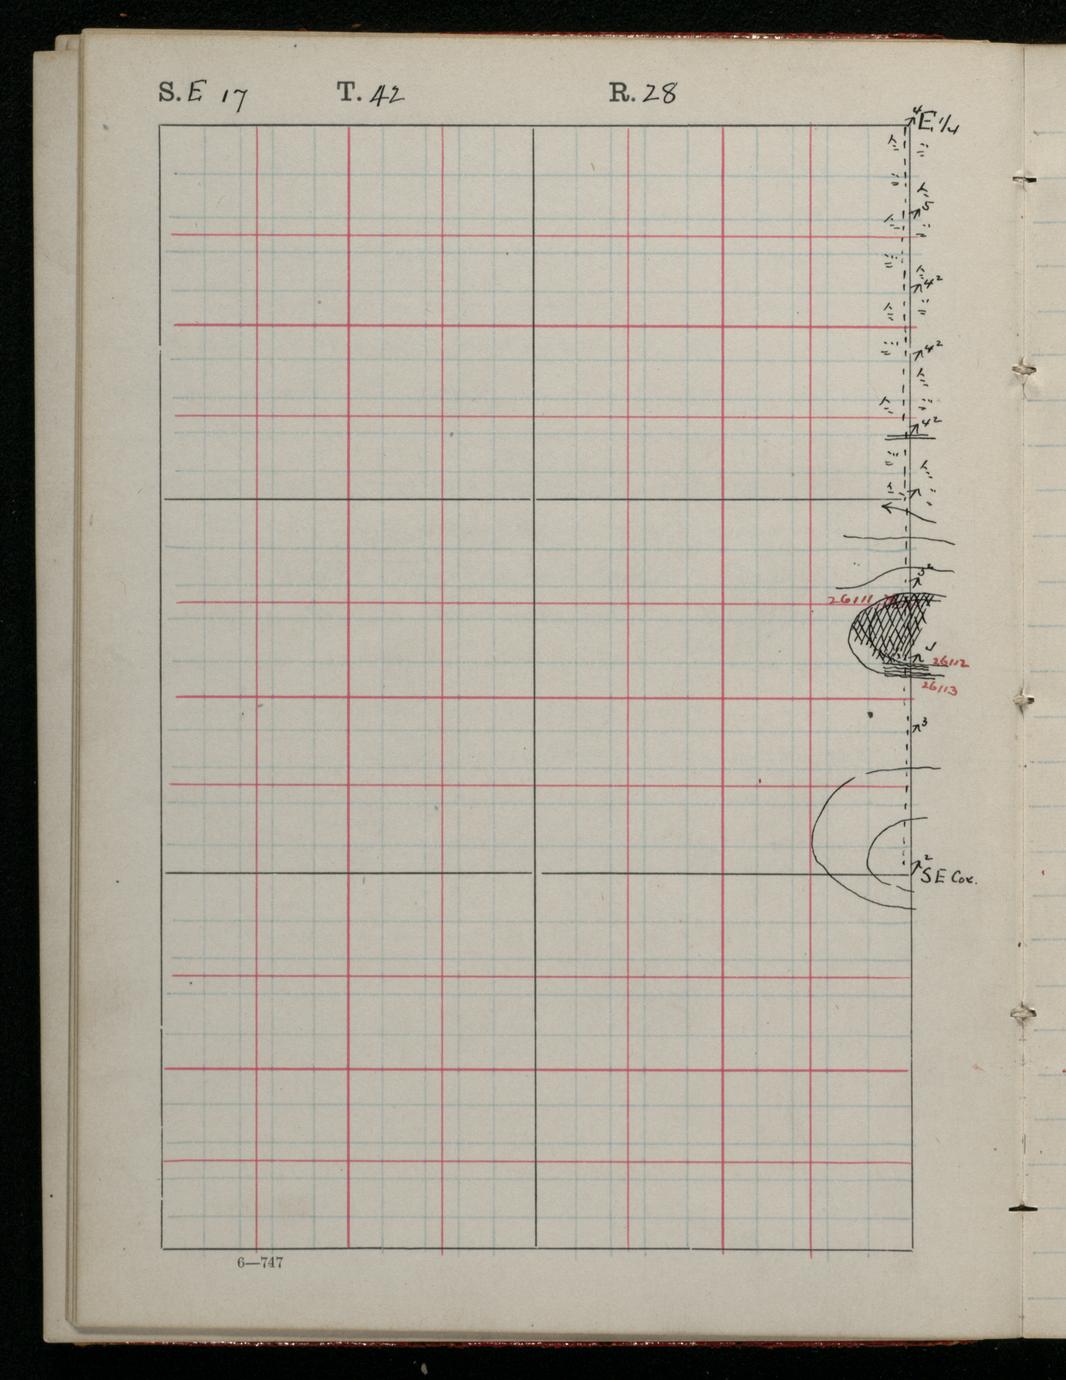 S. E 17 T. 42 R. 28
4 E 1/4
5
4²
4²
4²
26111
26112
26113
3
2
S E Cor.
6—747